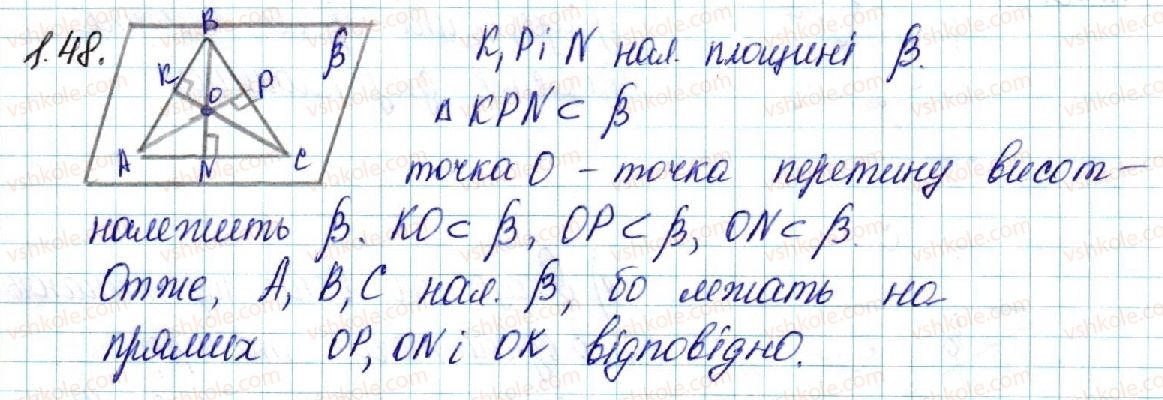 1.48.
B
β
K
O
P
A
N
C
K, P і N нал. площині β.
△ KPN ⊂ β
точка O – точка перетину висот –
належить β. KO ⊂ β, OP ⊂ β, ON ⊂ β.
Отже, A, B, C нал. β, бо лежать на
прямих OP, ON і OK відповідно.
vshkole.com